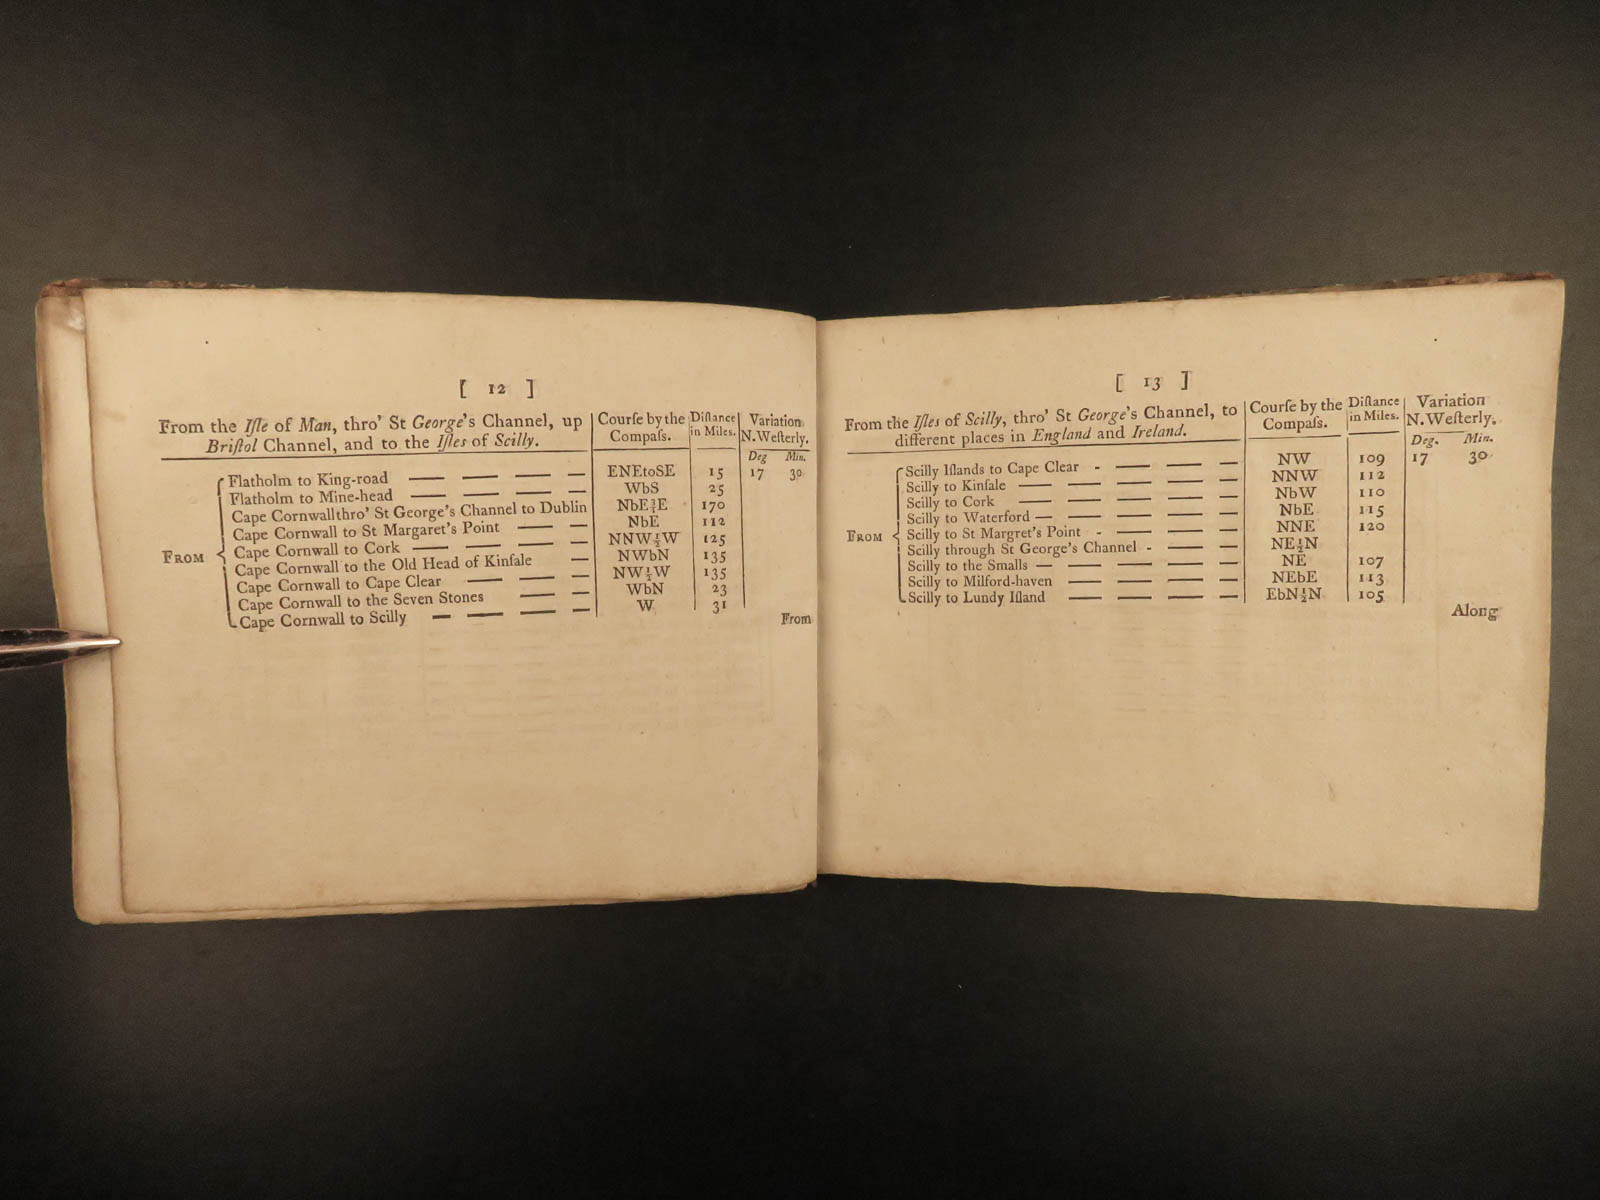 [ 12 ]
From the Iſle of Man, thro' St George's Channel, up Briſtol Channel, and to the Iſles of Scilly. | Courſe by the Compaſs. | Diſtance in Miles. | Variation N. Weſterly.
Deg Min.
FROM
Flatholm to King-road — — — — ENEtoSE 15 17 30
Flatholm to Mine-head — — — — WbS 25
Cape Cornwall thro' St George's Channel to Dublin NbE¾E 170
Cape Cornwall to St Margaret's Point — — NbE 112
Cape Cornwall to Cork — — — — NNW½W 125
Cape Cornwall to the Old Head of Kinſale — NWbN 135
Cape Cornwall to Cape Clear — — — NW½W 135
Cape Cornwall to the Seven Stones — — WbN 23
Cape Cornwall to Scilly — — — — W 31
From
[ 13 ]
From the Iſles of Scilly, thro' St George's Channel, to different places in England and Ireland. | Courſe by the Compaſs. | Diſtance in Miles. | Variation N. Weſterly.
Deg. Min.
FROM
Scilly Iſlands to Cape Clear - — — — NW 109 17 30
Scilly to Kinſale — — — — — NNW 112
Scilly to Cork — — — — NbW 110
Scilly to Waterford — — — — — NbE 115
Scilly to St Margret's Point - — — — NNE 120
Scilly through St George's Channel - — — NE½N
Scilly to the Smalls — — — — — NE 107
Scilly to Milford-haven — — — — NEbE 113
Scilly to Lundy Iſland — — — — EbN½N 105
Along